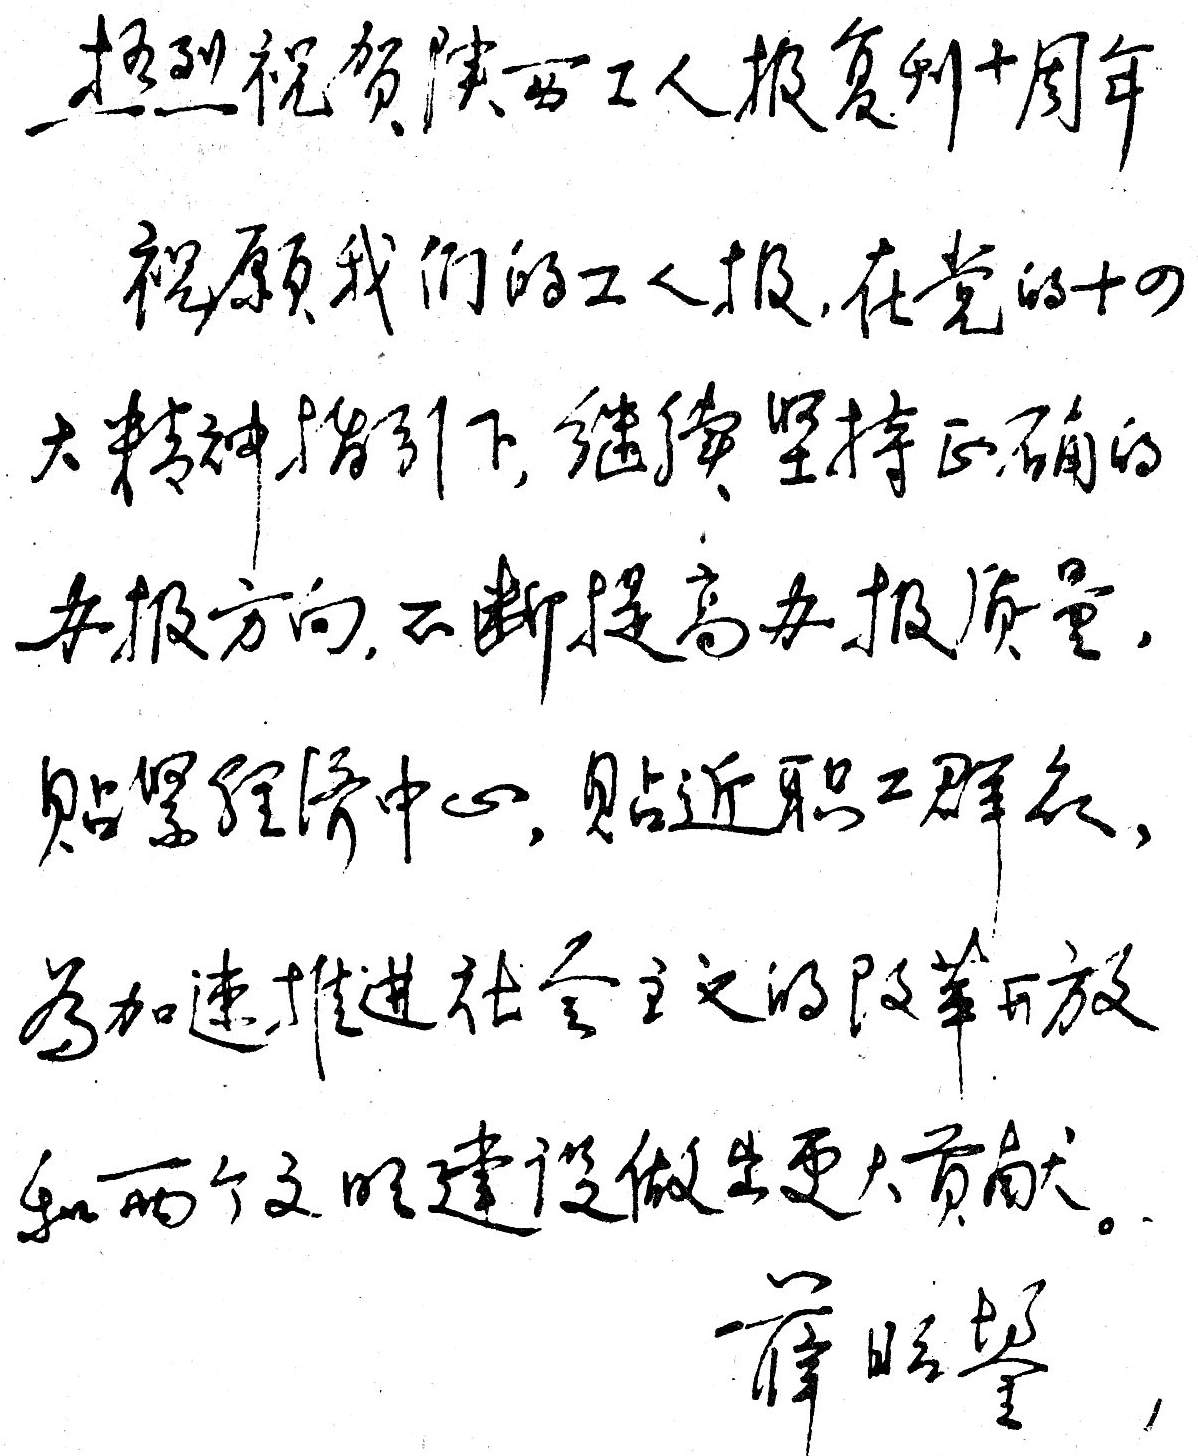 热烈祝贺陕西工人报复刊十周年
祝愿我们的工人报,在党的十四
大精神指引下,继续坚持正确的
办报方向,不断提高办报质量,
贴紧经济中心,贴近职工群众,
为加速推进社会主义的改革开放
和两个文明建设做出更大贡献。
薛昭鋆